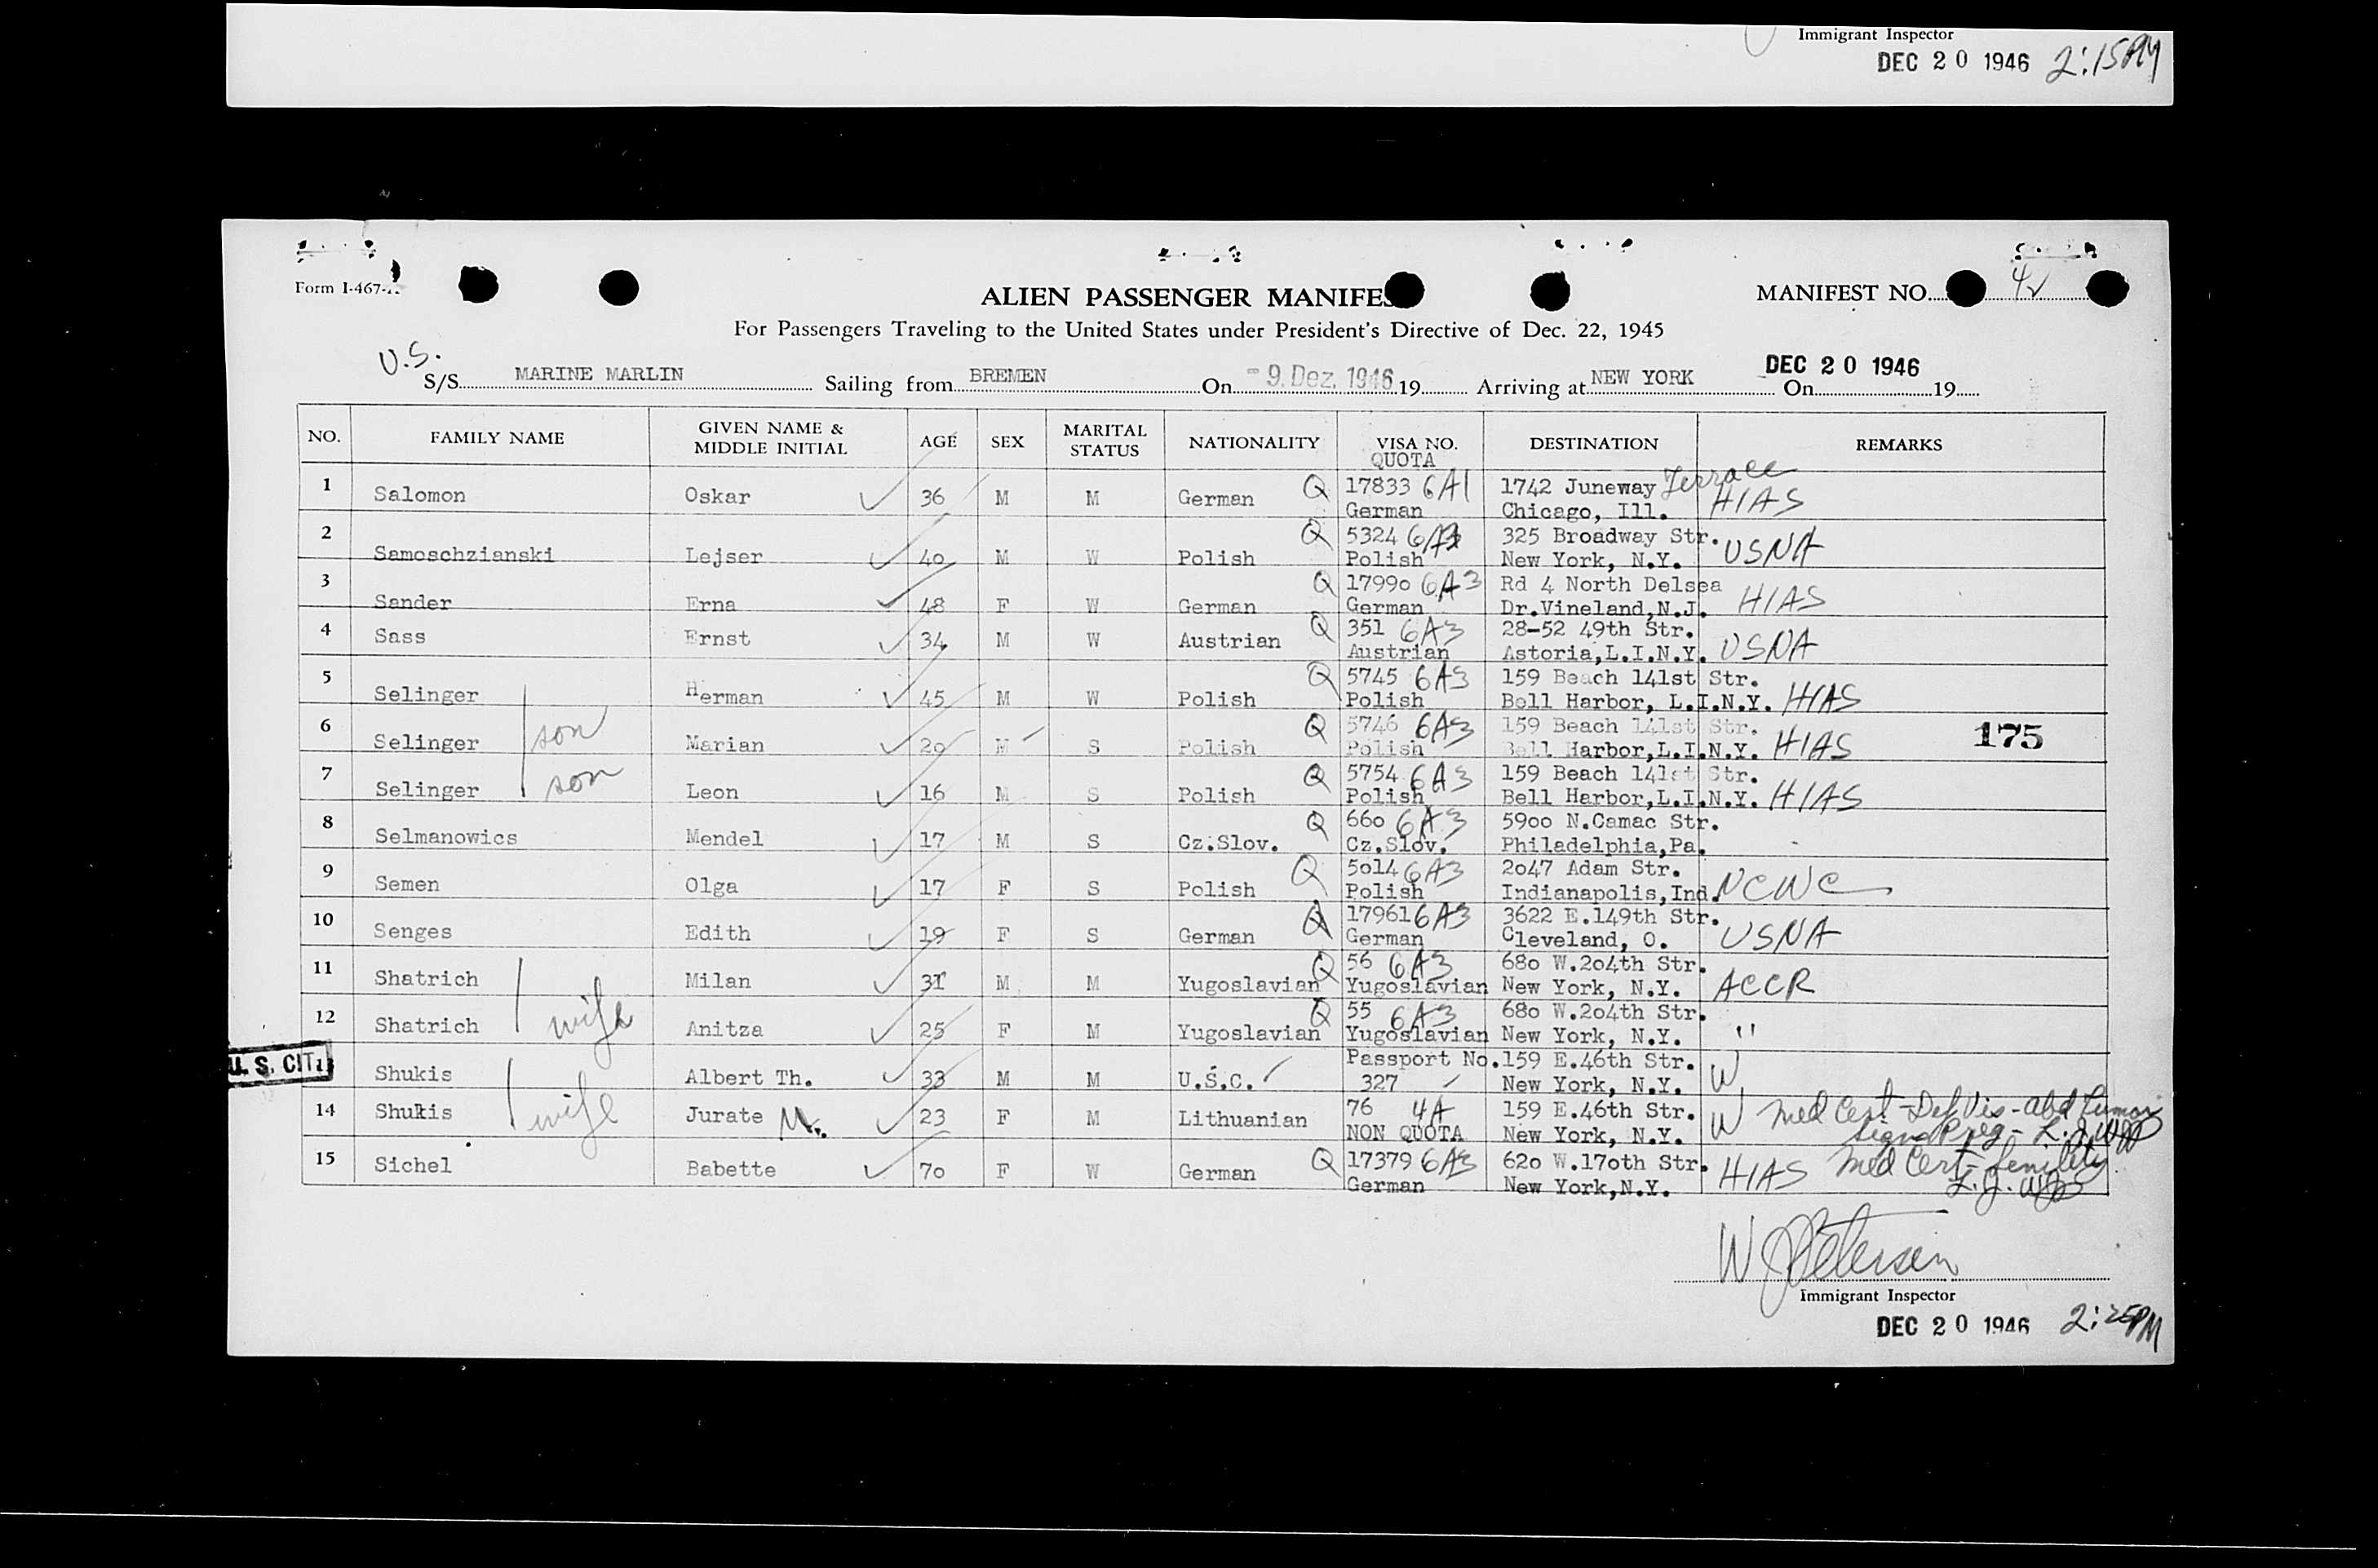 Immigrant Inspector
DEC 20 1946 2:15PM
Form I-467-
ALIEN PASSENGER MANIFES
MANIFEST NO. 42
For Passengers Traveling to the United States under President's Directive of Dec. 22, 1945
U.S.
S/S MARINE MARLIN Sailing from BREMEN On - 9. Dez. 1946 19 Arriving at NEW YORK On DEC 20 1946 19
NO. FAMILY NAME GIVEN NAME & MIDDLE INITIAL AGE SEX MARITAL STATUS NATIONALITY VISA NO. QUOTA DESTINATION REMARKS
1 Salomon Oskar 36 M M German Q 17833 6A1 1742 Juneway Terrace
German Chicago, Ill. HIAS
2 Samoschzianski Lejser 40 M W Polish Q 5324 6A3 325 Broadway Str.
Polish New York, N.Y. USNA
3 Sander Erna 48 F W German Q 17990 6A3 Rd 4 North Delsea
German Dr.Vineland,N.J. HIAS
4 Sass Ernst 34 M W Austrian Q 351 6A3 28-52 49th Str.
Austrian Astoria,L.I.N.Y. USNA
5 Selinger Herman 45 M W Polish Q 5745 6A3 159 Beach 141st Str.
Polish Bell Harbor, L.I.N.Y. HIAS
6 Selinger son Marian 20 M S Polish Q 5746 6A3 159 Beach 141st Str.
Polish Bell Harbor,L.I.N.Y. HIAS 175
7 Selinger son Leon 16 M S Polish Q 5754 6A3 159 Beach 141st Str.
Polish Bell Harbor,L.I.N.Y. HIAS
8 Selmanowics Mendel 17 M S Cz.Slov. Q 660 6A3 5900 N.Camac Str.
Cz.Slov. Philadelphia,Pa.
9 Semen Olga 17 F S Polish Q 5014 6A3 2047 Adam Str.
Polish Indianapolis,Ind. NCWC
10 Senges Edith 19 F S German Q 17961 6A3 3622 E.149th Str.
German Cleveland, O. USNA
11 Shatrich Milan 31 M M Yugoslavian Q 56 6A3 680 W.204th Str.
Yugoslavian New York, N.Y. ACCR
12 Shatrich wife Anitza 25 F M Yugoslavian Q 55 6A3 680 W.204th Str.
Yugoslavian New York, N.Y. "
U. S. CITI Shukis Albert Th. 33 M M U.S.C. Passport No. 159 E.46th Str.
327 New York, N.Y. W
14 Shukis wife Jurate M. 23 F M Lithuanian 76 4A 159 E.46th Str. W Med Cert - Def Vis - abd tumor
NON QUOTA New York, N.Y. signs Preg -
15 Sichel Babette 70 F W German Q 17379 6A3 620 W.170th Str. HIAS Med Cert - senility
German New York,N.Y.
W J Petersen
Immigrant Inspector
DEC 20 1946 2:25PM